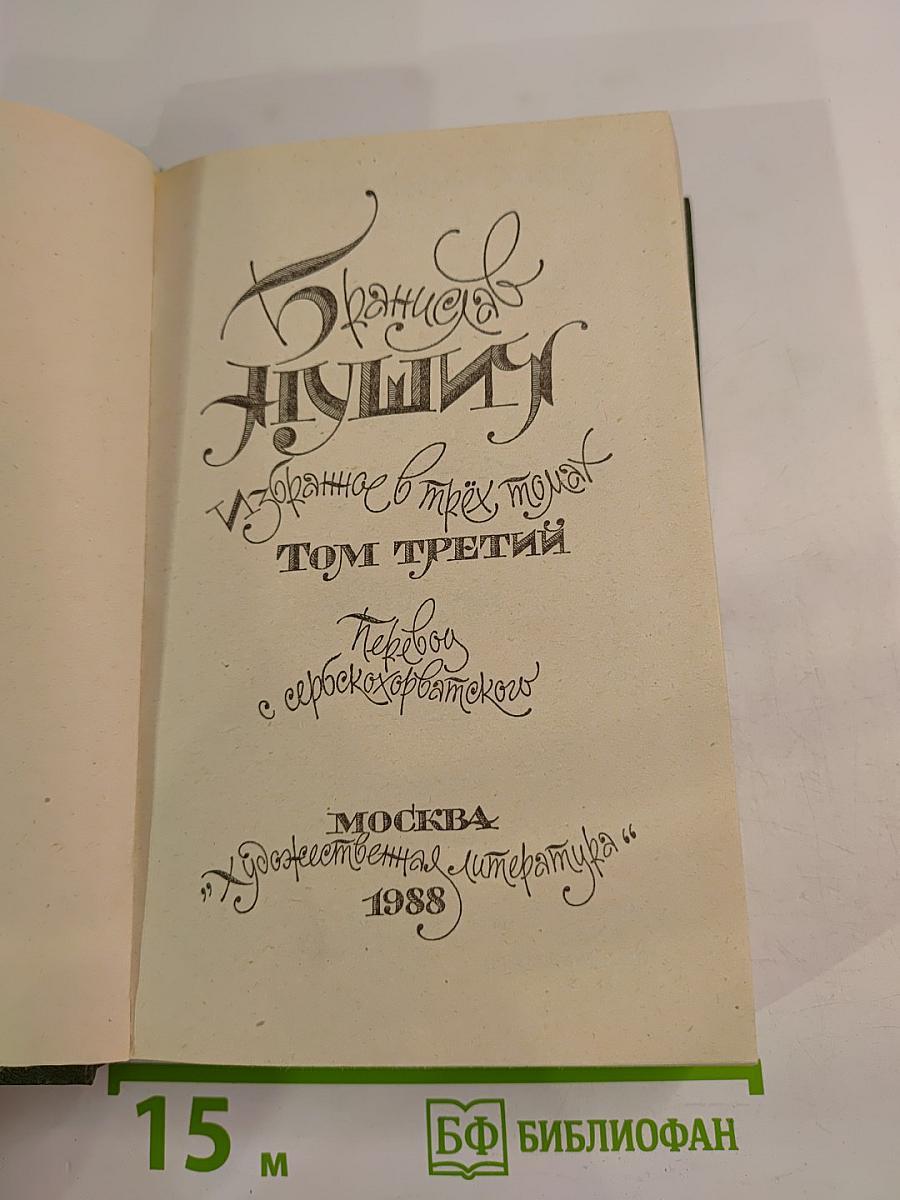 Бранислав
НУШИЧ
Избранное в трёх томах
ТОМ ТРЕТИЙ
Перевод
с сербскохорватского
МОСКВА
„Художественная литература“
1988
15 м
БФ БИБЛИОФАН